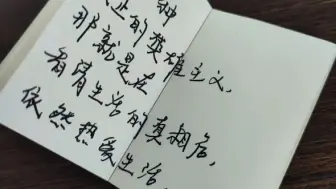 种
的英雄主义,
那就是在
看清生活的真相后,
依然热爱生活,